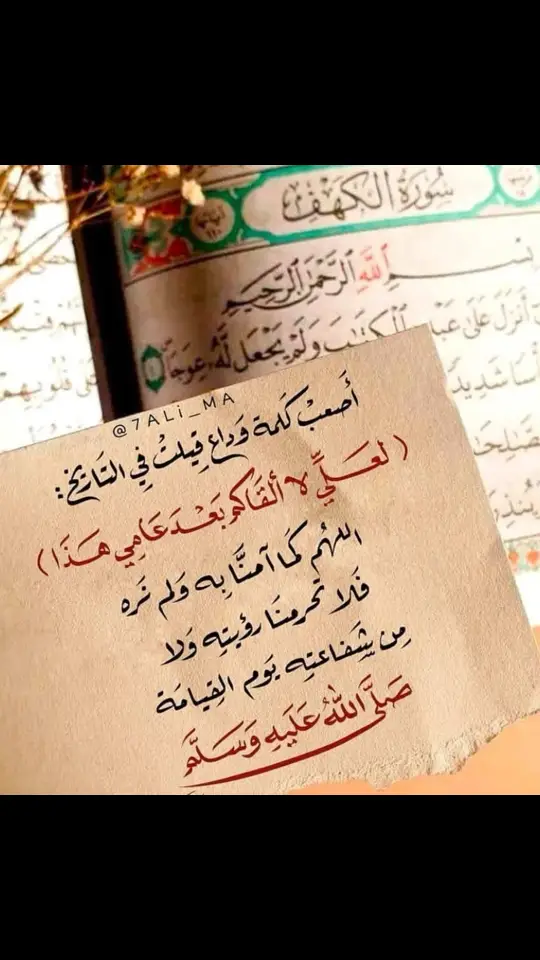 سُورَةُ الكَهْفِ
بِسْمِ ٱللَّهِ ٱلرَّحْمَٰنِ ٱلرَّحِيمِ
أَنزَلَ عَلَىٰ عَبْدِهِ ٱلْكِتَٰبَ وَلَمْ يَجْعَل لَّهُۥ عِوَجَا
@7ALi_MA
أَصعبْ كَلمة وَداع قِيلتْ فِي التَاريخ :
( لعَلِّي لا ألقَاكم بَعْدَ عَامِي هَذَا )
اللهُم كمَا آمنَّا بِه وَلم نَره
فَلا تحرمنَا رؤيتِه وَلا
مِن شِفاعتِه يَوم القِيامَة
صَلَّى اللهُ عَلَيهِ وَسَلَّمَ